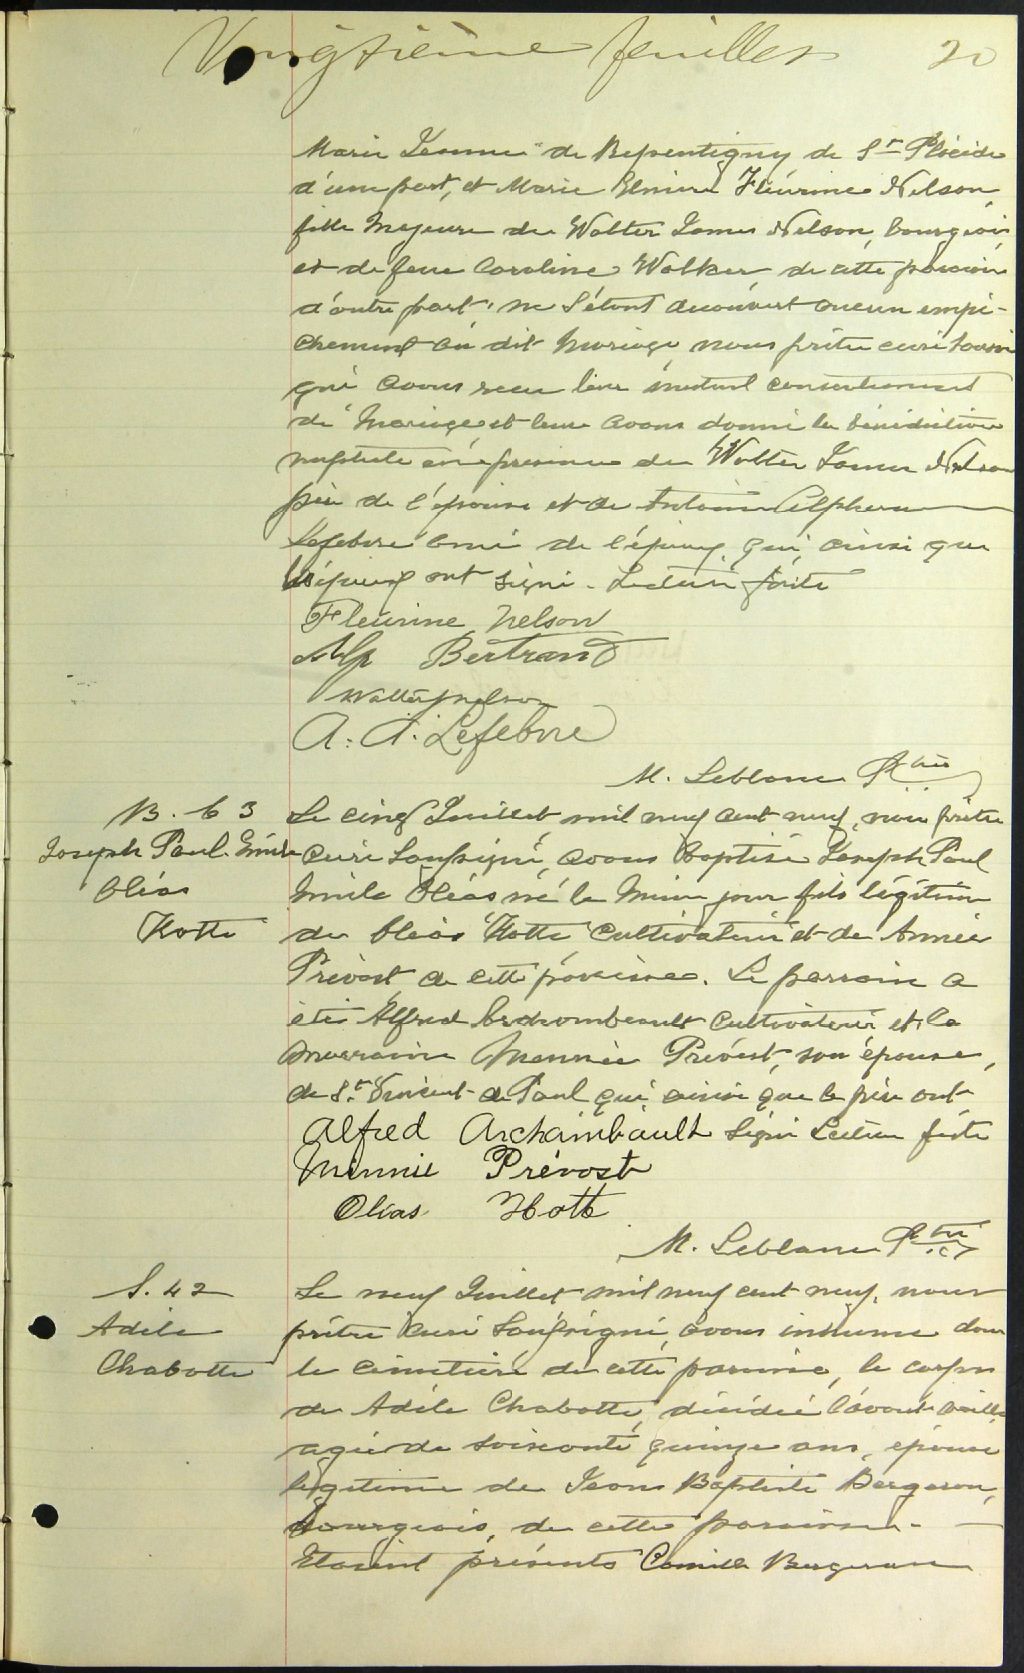 Vingtième feuillet 20
Marie Jeanne de Repentigny de St Placide
d'une part, et Marie Elmire Fleurine Nelson,
fille majeure de Walter James Nelson, bourgeois
et de feue Caroline Walker de cette paroisse
d'autre part, ne s'étant découvert aucun empê-
chement au dit mariage, nous prêtre curé soussi
gné avons reçu leur mutuel consentement
de mariage et leur avons donné la bénédiction
nuptiale en présence de Walter James Nelson
père de l'épouse et de Antoine Alphonse
Lefebvre ami de l'époux qui, ainsi que
les époux ont signé. Lecture faite
Fleurine Nelson
Alp Bertrand
Walter J Nelson
A. A. Lefebvre
M. Leblanc Ptre
B. 63
Joseph Paul Emile
Oléas
Hotte
Le cinq Juillet mil neuf cent neuf, nous prêtre
curé soussigné, avons baptisé Joseph Paul
Emile Oléas né le même jour fils légitime
de Oléas Hotte cultivateur et de Annie
Prévost de cette paroisse. Le parrain a
été Alfred Archambault cultivateur et la
marraine Mennie Prévost, son épouse,
de St Vincent de Paul qui ainsi que le père ont
Alfred Archambault signé Lecture faite
Minnie Prévost
Olias Hotte
M. Leblanc Ptre
S. 42
Adèle
Chabotte
Le neuf Juillet mil neuf cent neuf, nous
prêtre curé soussigné, avons inhumé dans
le cimetière de cette paroisse, le corps
de Adèle Chabotte, décédée l'avant veille
agée de soixante quinze ans, épouse
légitime de Jean Baptiste Bergeron,
bourgeois, de cette paroisse.
Etaient présents Camille Bergeron